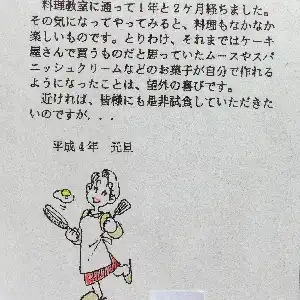 料理教室に通って１年と２ケ月経ちました。
その気になってやってみると、料理もなかなか
楽しいものです。とりわけ、それまではケーキ
屋さんで買うものだと思っていたムースやスパ
ニッシュクリームなどのお菓子が自分で作れる
ようになったことは、望外の喜びです。
近ければ、皆様にも是非試食していただきた
いのですが．．．
平成４年　元旦